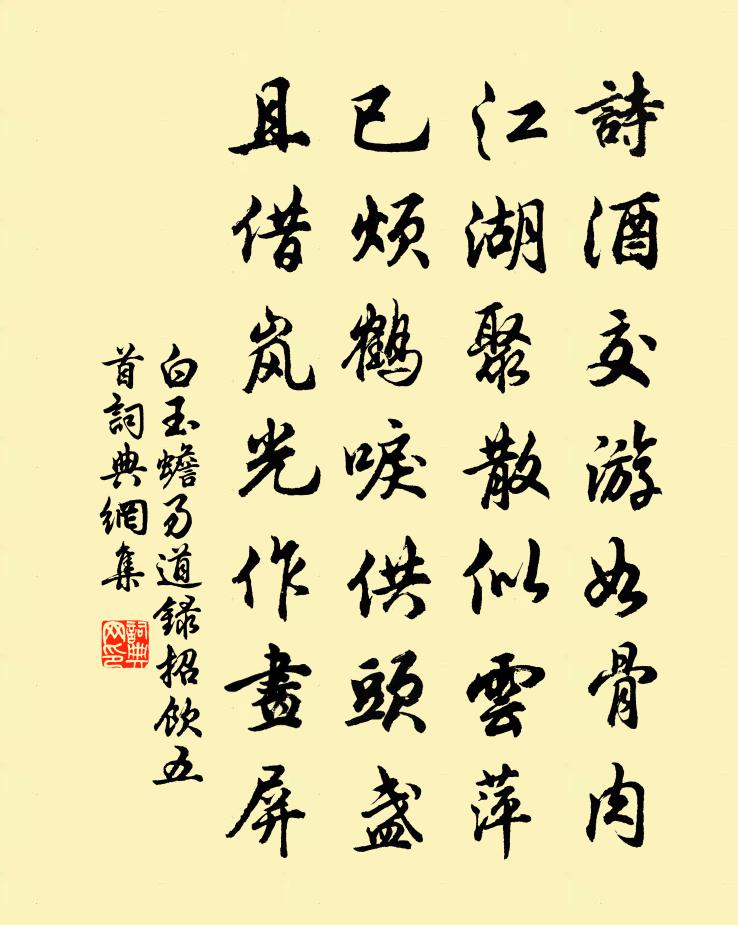 詩酒交游如骨肉
江湖聚散似雲萍
已煩鶴唳供頭盞
且借岚光作畫屏
白玉蟾易道録招飲五
首詞典網集
詞典網印